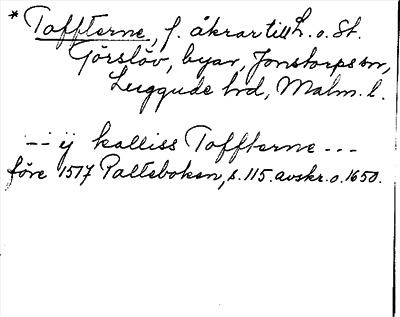 * Toffterne, f. åkrar till L. o. St.
Görslöv, byar, Jonstorps sn,
Luggude hd, Malm. l.
--- ij kalliss Toffterne ---
före 1517 Palteboken, s. 115. avskr. o. 1650.